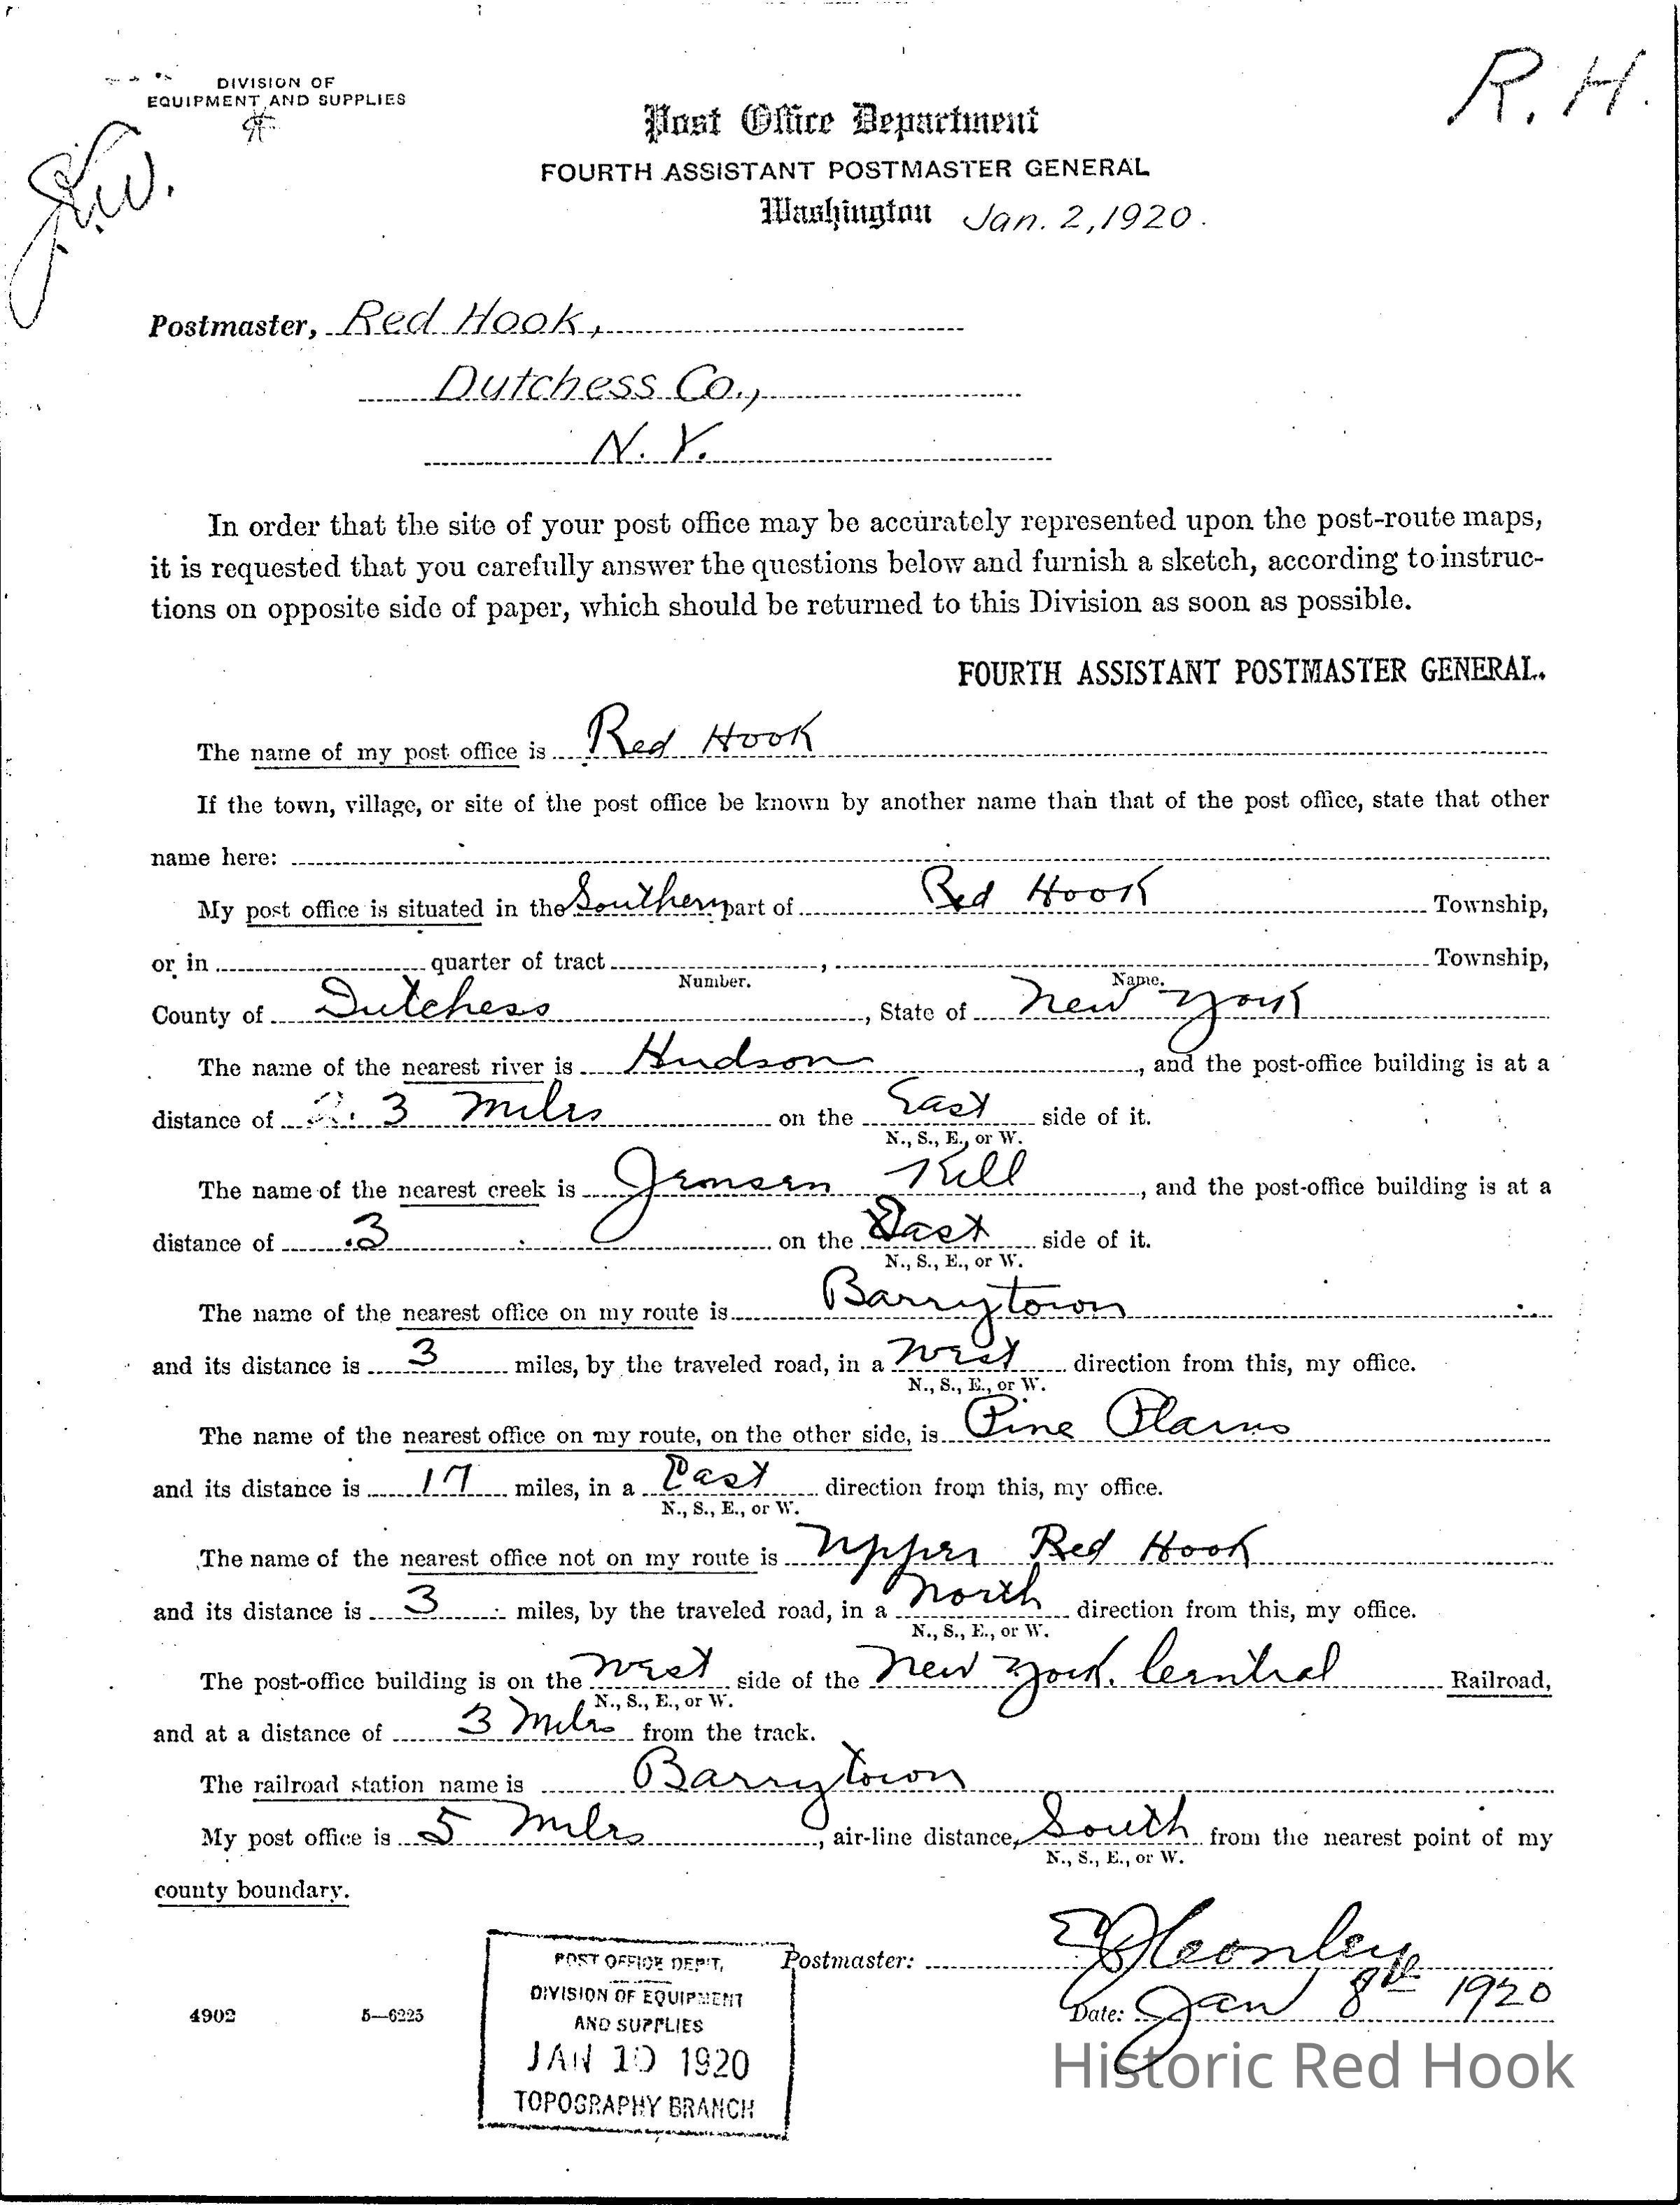 DIVISION OF
EQUIPMENT AND SUPPLIES
R. H.
Post Office Department
FOURTH ASSISTANT POSTMASTER GENERAL
Washington Jan. 2, 1920.
Postmaster, Red Hook,
Dutchess Co.,
N. Y.
In order that the site of your post office may be accurately represented upon the post-route maps,
it is requested that you carefully answer the questions below and furnish a sketch, according to instruc-
tions on opposite side of paper, which should be returned to this Division as soon as possible.
FOURTH ASSISTANT POSTMASTER GENERAL.
The name of my post office is Red Hook
If the town, village, or site of the post office be known by another name than that of the post office, state that other
name here:
My post office is situated in the Southern part of Red Hook Township,
or in quarter of tract , Township,
Number. Name.
County of Dutchess , State of New York
The name of the nearest river is Hudson , and the post-office building is at a
distance of 2.3 miles on the East side of it.
N., S., E., or W.
The name of the nearest creek is Kill , and the post-office building is at a
distance of .3 on the East side of it.
N., S., E., or W.
The name of the nearest office on my route is Barrytown
and its distance is 3 miles, by the traveled road, in a West direction from this, my office.
N., S., E., or W.
The name of the nearest office on my route, on the other side, is Pine Plains
and its distance is 17 miles, in a East direction from this, my office.
N., S., E., or W.
The name of the nearest office not on my route is Upper Red Hook
and its distance is 3 miles, by the traveled road, in a North direction from this, my office.
N., S., E., or W.
The post-office building is on the West side of the New York Central Railroad,
N., S., E., or W.
and at a distance of 3 Miles from the track.
The railroad station name is Barrytown
My post office is 5 miles , air-line distance, South from the nearest point of my
N., S., E., or W.
county boundary.
Postmaster:
Date: Jan 8th 1920
POST OFFICE DEP'T,
DIVISION OF EQUIPMENT
AND SUPPLIES
JAN 10 1920
TOPOGRAPHY BRANCH
4902 5—6225
Historic Red Hook